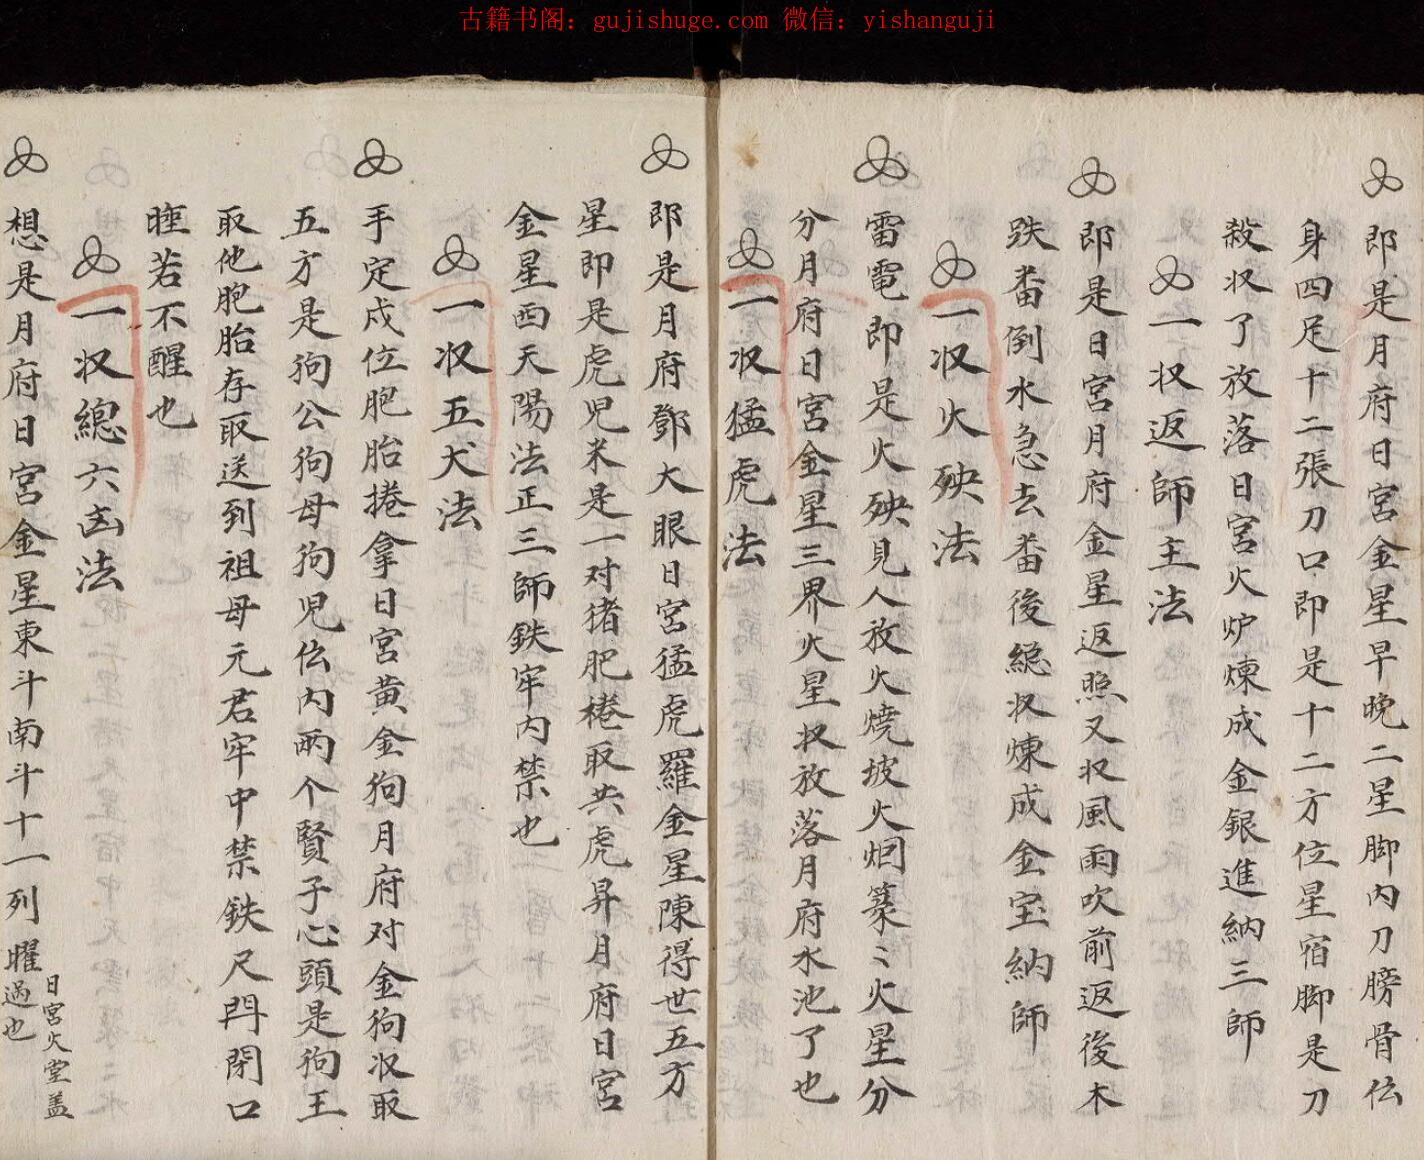 古籍书阁：gujishuge.com 微信：yishanguji
即是月府日宮金星早晚二星脚内刀膀骨伝
身四足十二張刀口即是十二方位星宿脚是刀
殺収了放落日宮火炉煉成金銀進納三師
一収返師主法
即是日宮月府金星返照又収風雨吹前返後木
跌番倒水急去番後總収煉成金宝納師
一収火殃法
雷電即是火殃見人放火燒坡火烟篆〻火星分
分月府日宮金星三界火星収放落月府水池了也
一収猛虎法
即是月府鄧大眼日宮猛虎羅金星陳得世五方
星即是虎児来是一对猪肥捲取共虎昇月府日宮
金星西天陽法正三師鉄牢内禁也
一収五犬法
手定戍位肥胎捲拿日宮黄金狗月府对金狗収取
五方是狗公狗母狗児伝内两个賢子心頭是狗王
取他胞胎存取送到祖母元君牢中禁鉄尺門閉口
睡若不醒也
一収總六凶法
想是月府日宮金星東斗南斗十一列曜過也
日宮火堂盖